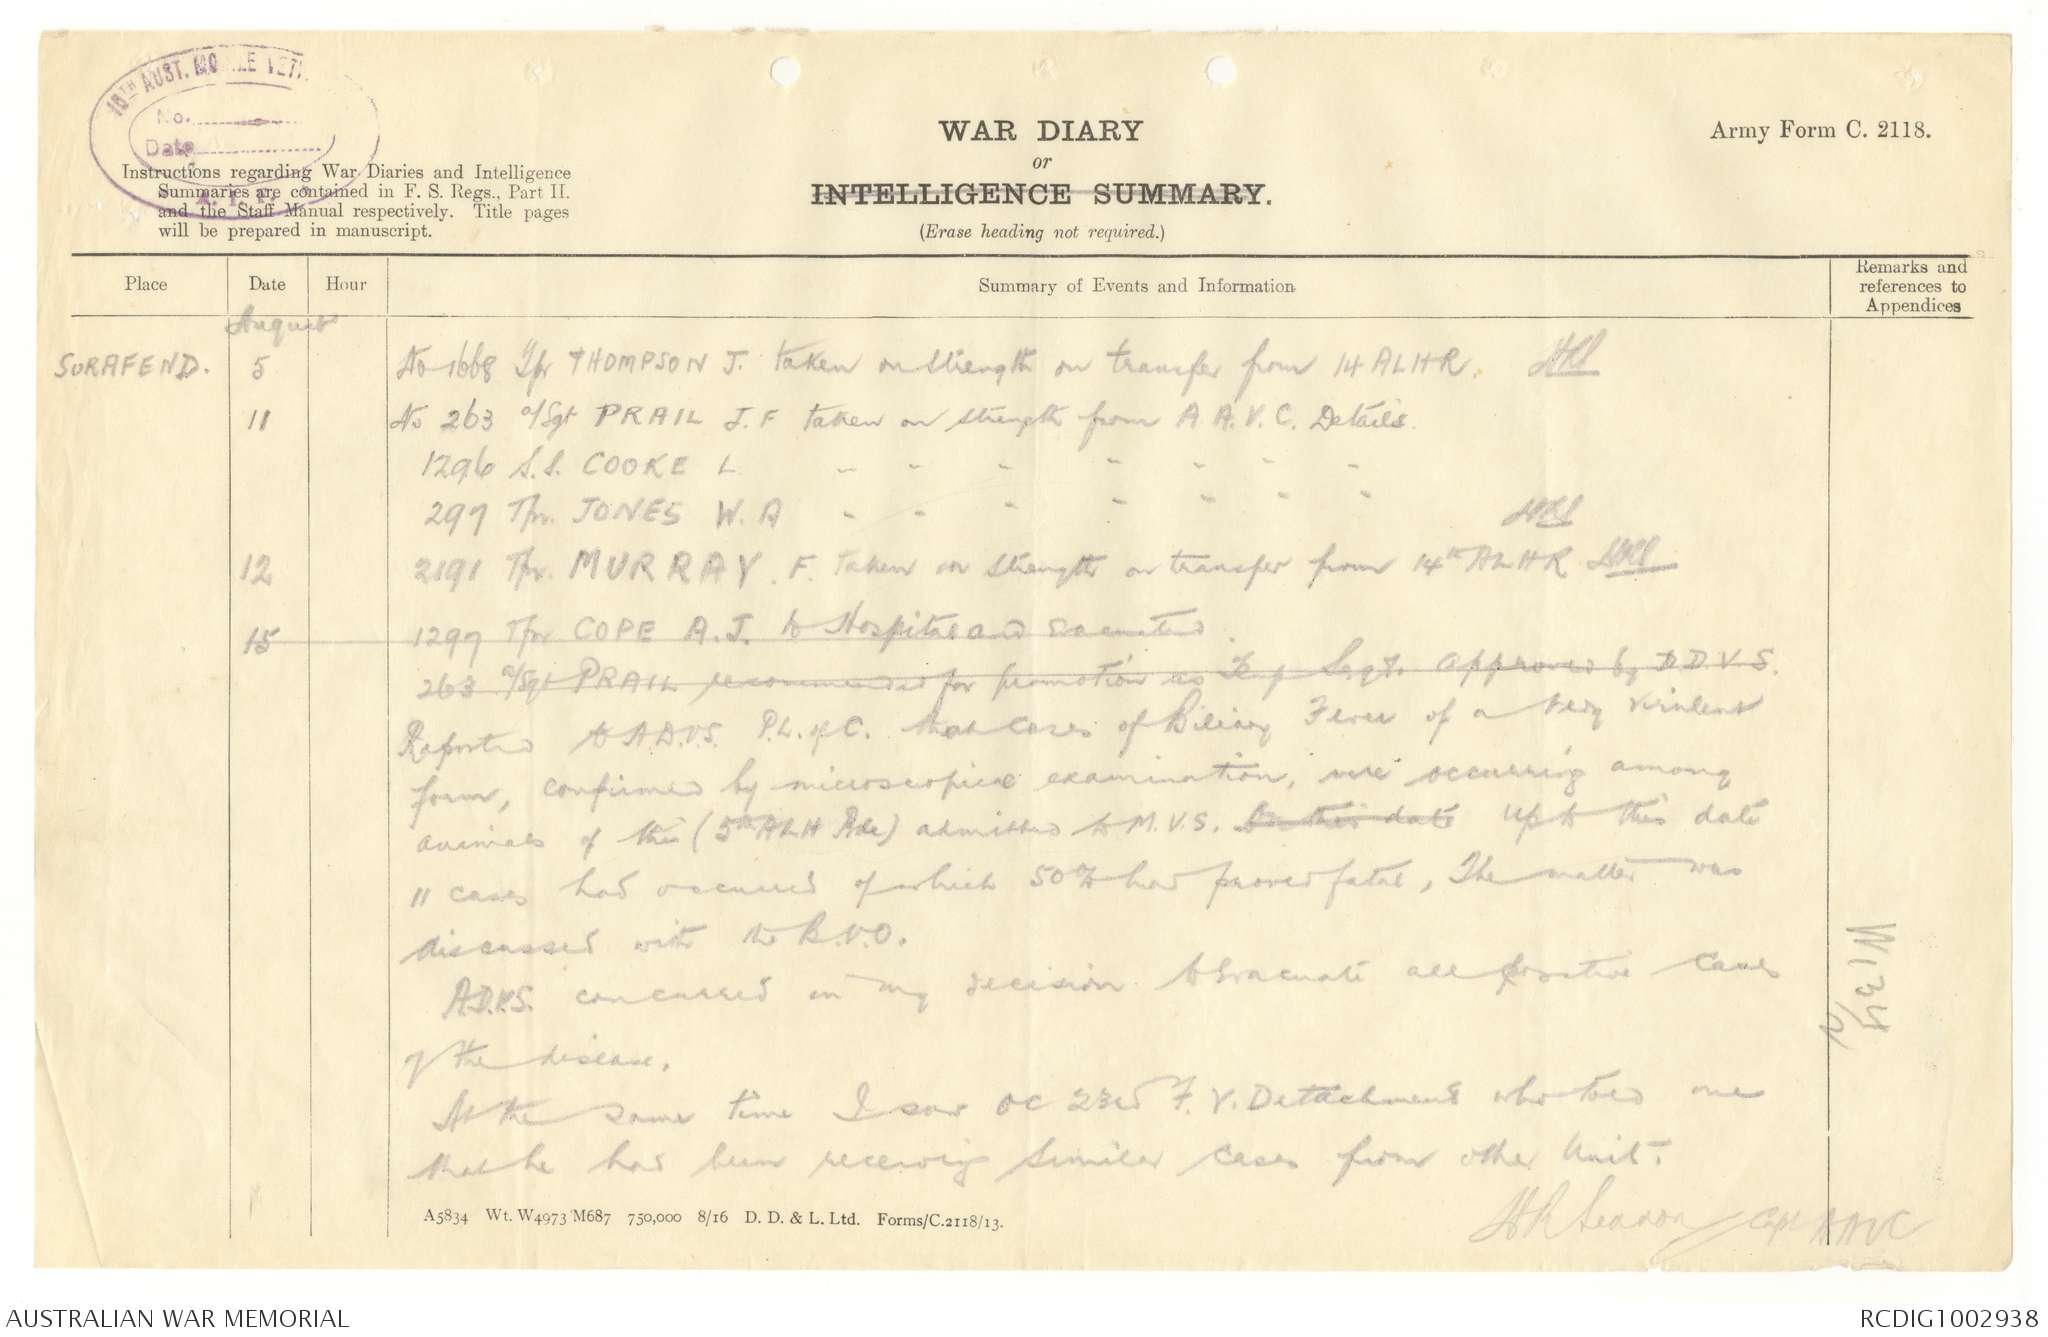 18TH AUST. MOBILE VET
No.
Date
A. I. F.
WAR DIARY
or
INTELLIGENCE SUMMARY.
(Erase heading not required.)
Army Form C. 2118.
Instructions regarding War Diaries and Intelligence
Summaries are contained in F. S. Regs., Part II.
and the Staff Manual respectively. Title pages
will be prepared in manuscript.
Place Date Hour Summary of Events and Information Remarks and references to Appendices
August
SURAFEND. 5 No 1668 Tpr THOMPSON J. taken on strength on transfer from 14 ALHR. HRS
11 No 263 a/Sgt PRAIL J.F taken on strength from A A.V.C. Details.
1296 S.S. COOKE L " " " " " " "
297 Tpr. JONES W.A " " " " " " " HRS
12 2191 Tpr. MURRAY. F. taken on strength on transfer from 14th ALHR HRS
15 1297 Tpr COPE A.J. to Hospital and evacuated.
263 a/Sgt PRAIL recommended for promotion as Temp Sergt. approved by D.D.V.S.
Reported to A.D.V.S. P.L. of C. that cases of Biliary Fever of a very virulent
form, confirmed by microscopical examination, were occurring among
animals of this (5th ALH Bde) admitted to M.V.S. to this date up to this date
11 cases had occurred of which 50% had proved fatal, The matter was
discussed with the B.V.O.
A.D.V.S. concurred in my decision to evacuate all positive cases
of the disease.
At the same time I saw OC 23rd F.V. Detachment who told me
that he had been receiving similar cases from other Unit.
H R Seddon Capt AAVC
W134
A5834 Wt. W4973 M687 750,000 8/16 D. D. & L. Ltd. Forms/C.2118/13.
AUSTRALIAN WAR MEMORIAL
RCDIG1002938